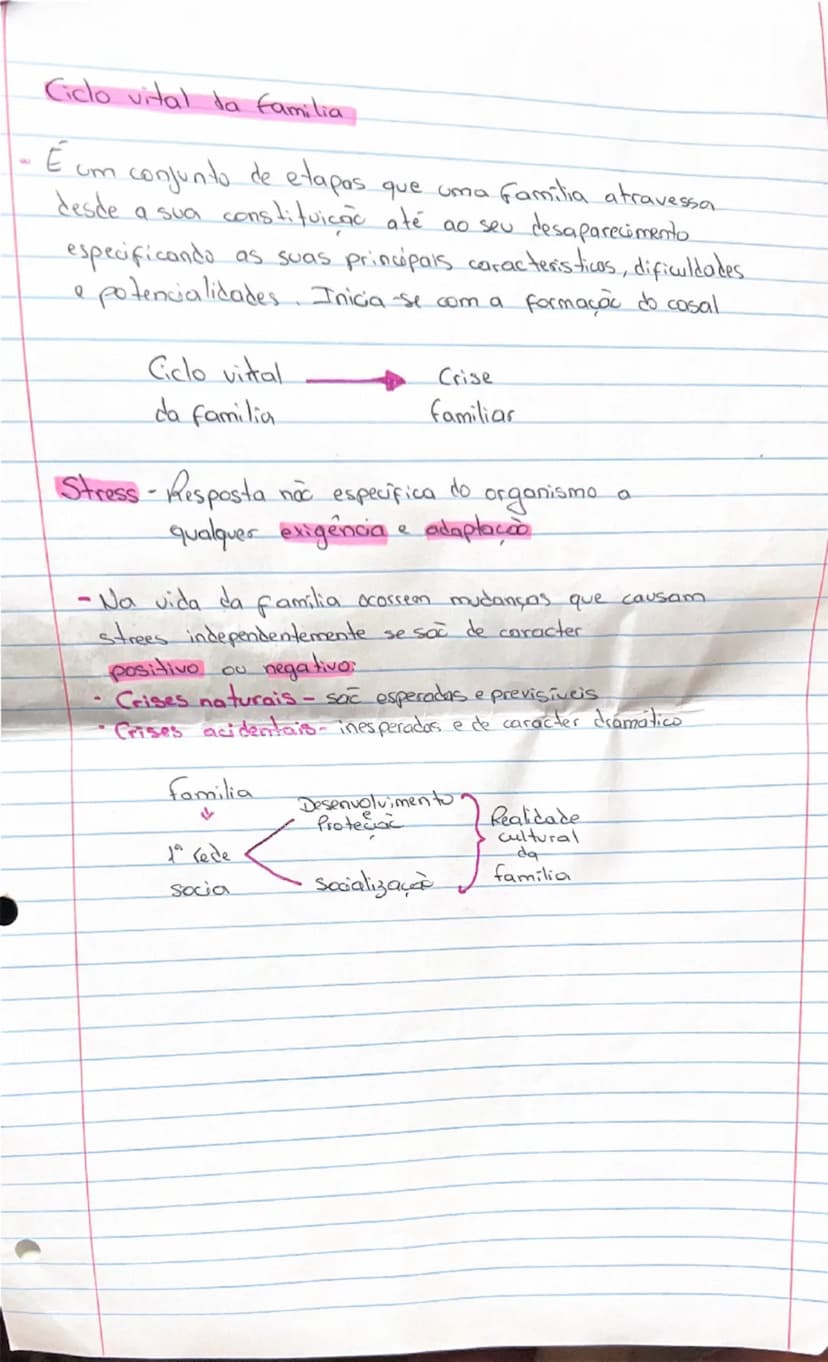 Ciclo vital da familia
- É um conjunto de etapas que uma família atravessa
desde a sua constituição até ao seu desaparecimento
especificando as suas principais caracteristicas, dificuldades
e potencialidades. Inicia-se com a formação do casal
Ciclo vital → Crise
da familia familiar
Stress - Resposta não especifica do organismo a
qualquer exigência e adaptação
- Na vida da família ocorrem mudanças que causam
strees independentemente se são de caracter
positivo ou negativo:
· Crises naturais - são esperadas e previsíveis
· Crises acidentais - inesperadas e de caracter dramático
familia
↓
1ª rede
socia
Desenvolvimento
e
Proteção
socialização
Realidade
cultural
da
família